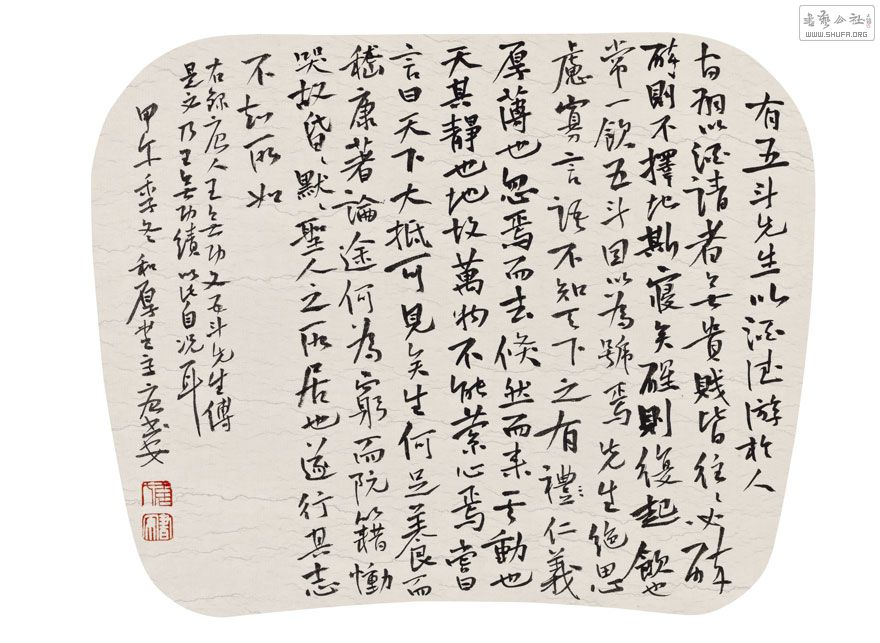 有五斗先生以酒德游於人
有以酒請者無貴賤皆往〻必醉
醉則不擇地斯寢矣醒則復起飲也
常一飲五斗因以為號焉先生絕思
慮寡言語不知天下之有禮仁義
厚薄也忽焉而去倏然而来其動也
天其靜也地故萬物不能縈心焉嘗
言曰天下大抵可見矣生何足養而
嵇康著論途何為窮而阮籍慟
哭故昏〻默〻聖人之所居也遂行其志
不知所如
右録唐人王無功文五斗先生傳
是文乃王無功績以此自况耳
甲午季冬和厚堂主唐書安
書藝公社
WWW.SHUFA.ORG